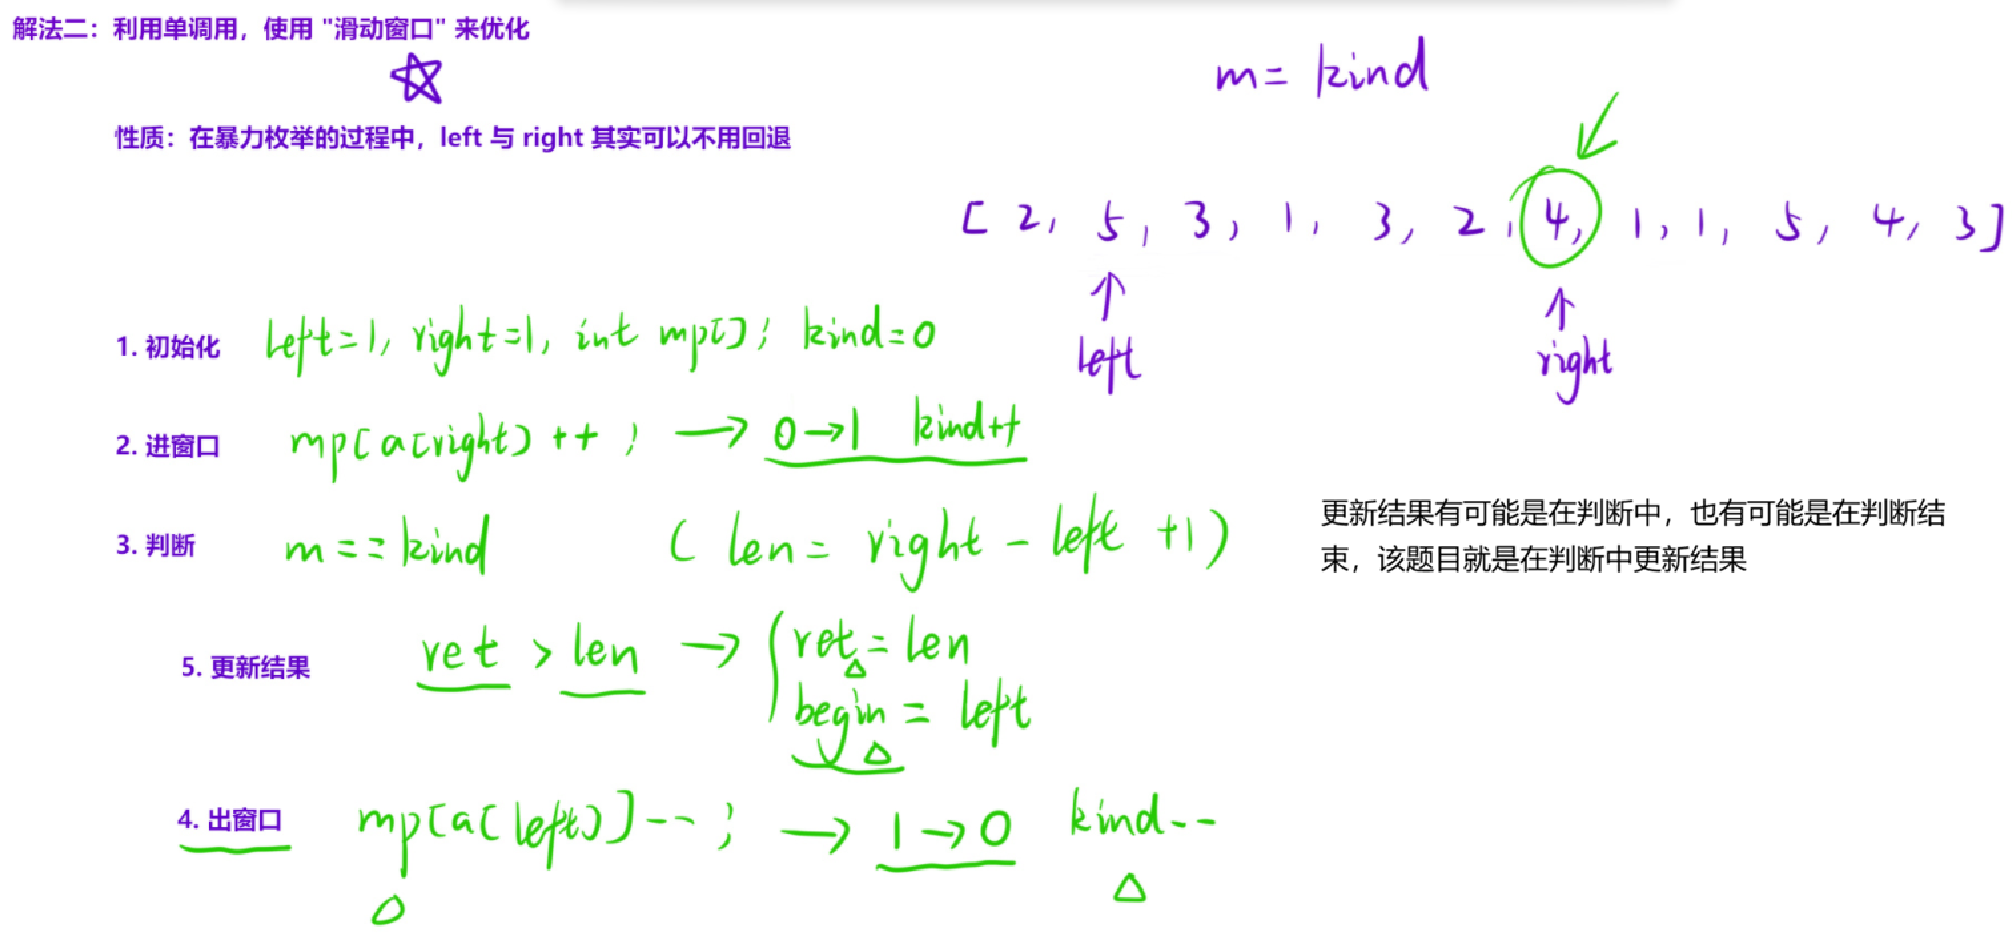 解法二：利用单调用，使用 "滑动窗口" 来优化
m = kind
性质：在暴力枚举的过程中，left 与 right 其实可以不用回退
[ 2, 5, 3, 1, 3, 2, 4, 1, 1, 5, 4, 3 ]
left right
1. 初始化 left=1, right=1, int mp[]; kind=0
2. 进窗口 mp[a[right] ++ ; → 0→1 kind++
3. 判断 m == kind ( len = right - left +1 )
更新结果有可能是在判断中，也有可能是在判断结
束，该题目就是在判断中更新结果
5. 更新结果 ret > len → ret = len
begin = left
4. 出窗口 mp[a[left]]-- ; → 1→0 kind--